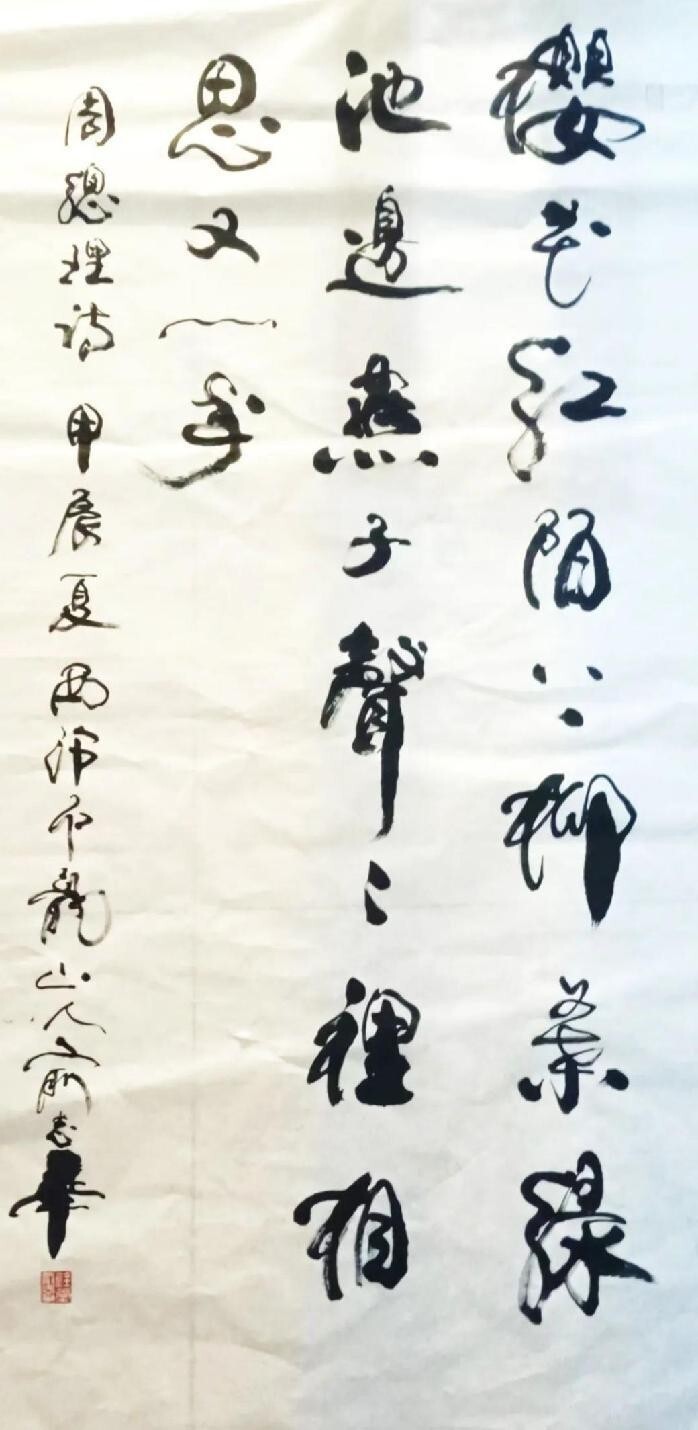 櫻花紅陌〻柳葉綠
池邊燕子聲〻裡相
思又一年
周總理詩 甲辰夏西泠 龍山人俞志華